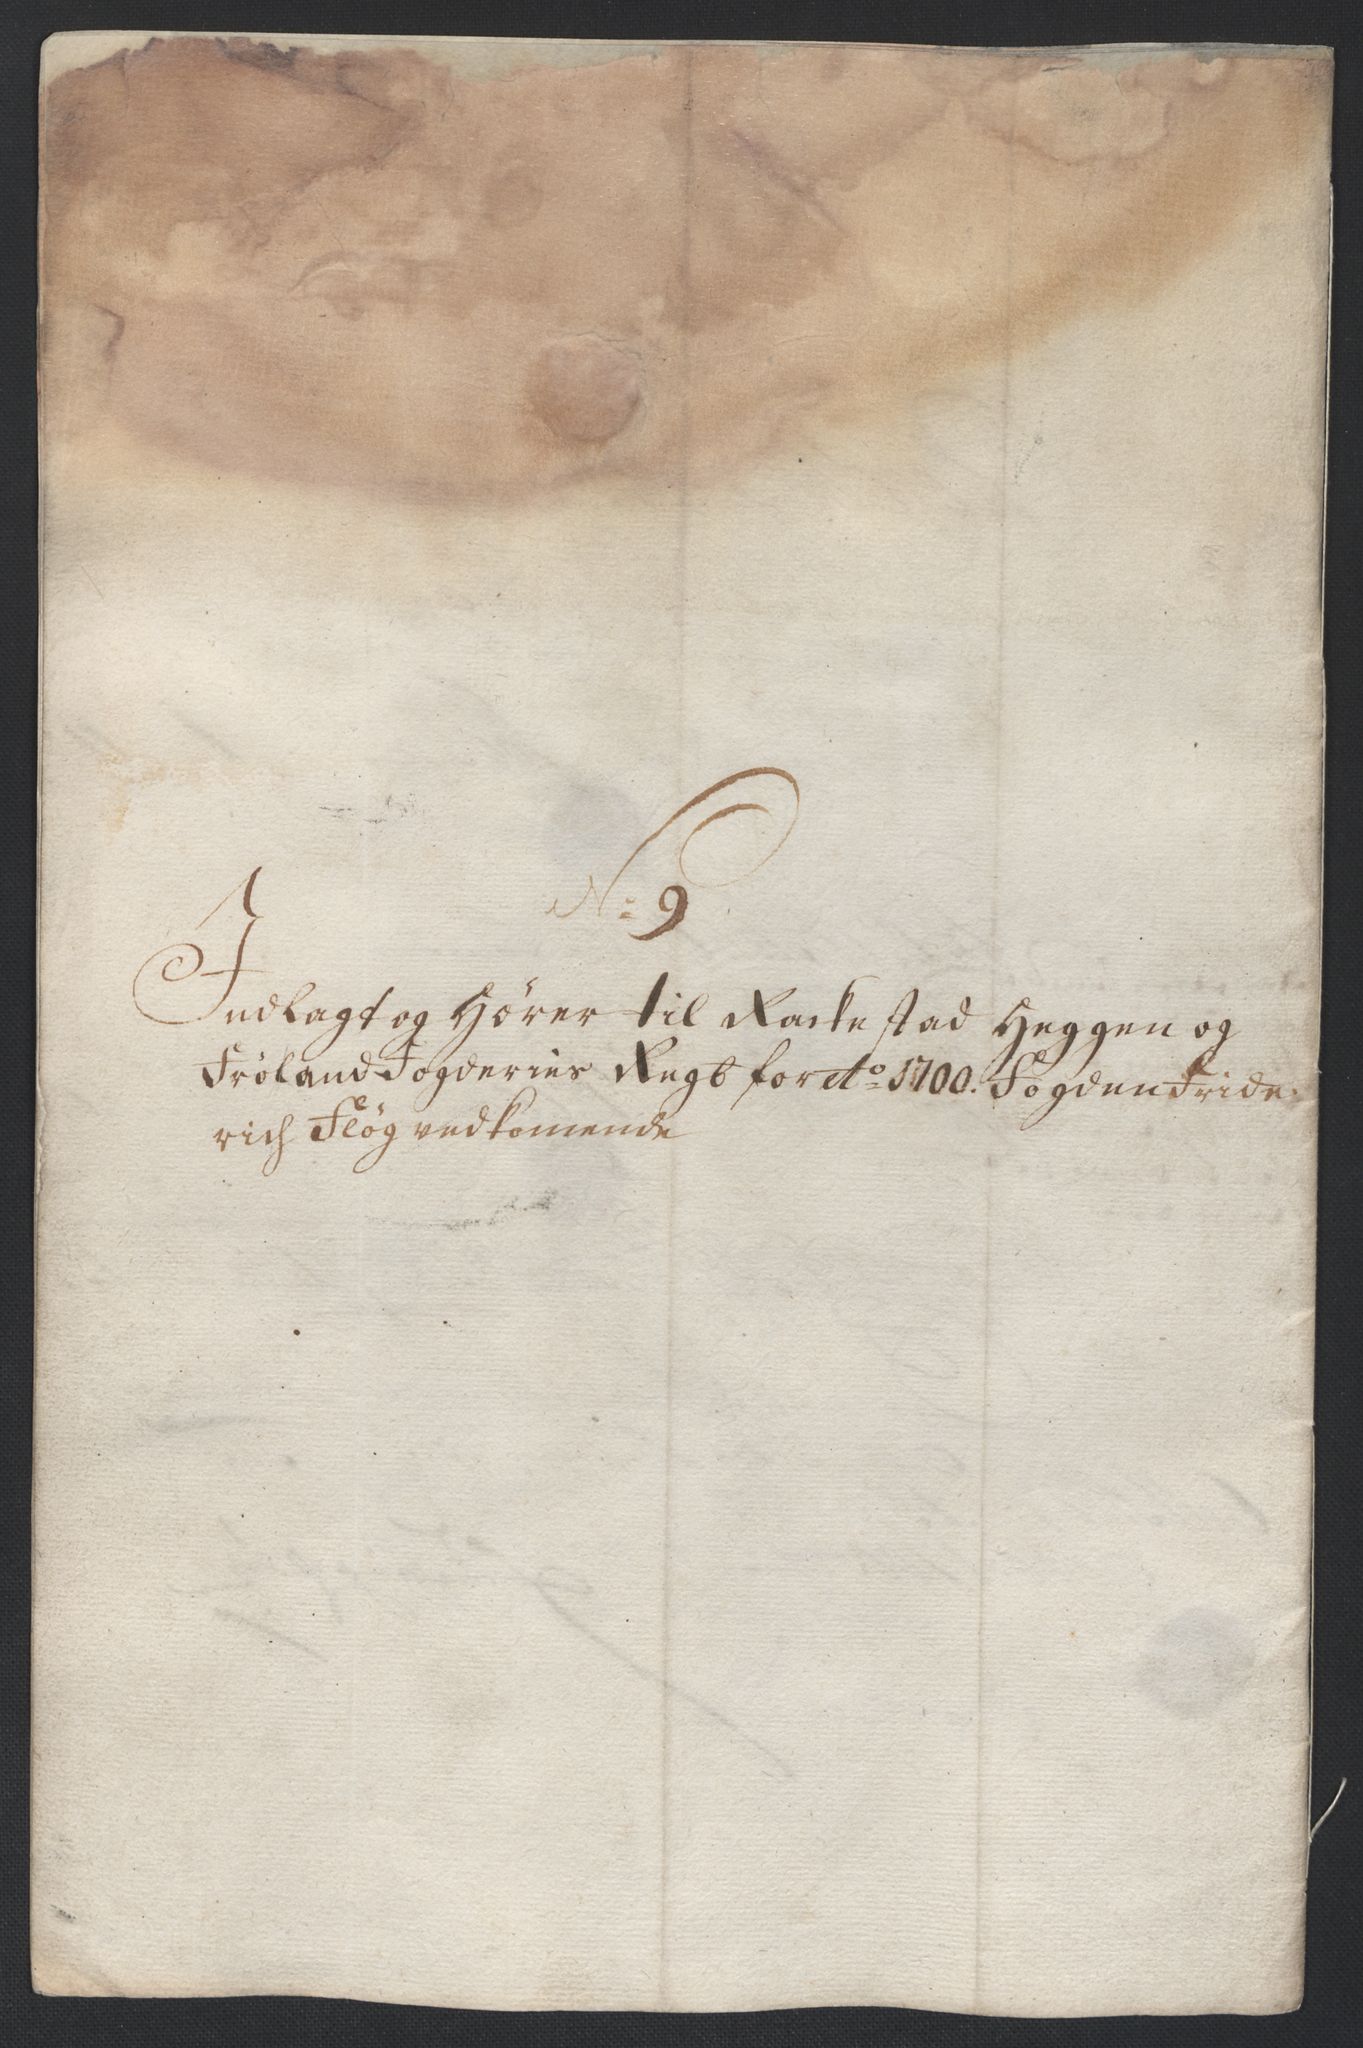 No: 9
Indlagt og Hører til Rackestad Heggen og
Frøland Fogderies Regb for Ao 1700. Fogden Fride-
rich Fløg vedkomende